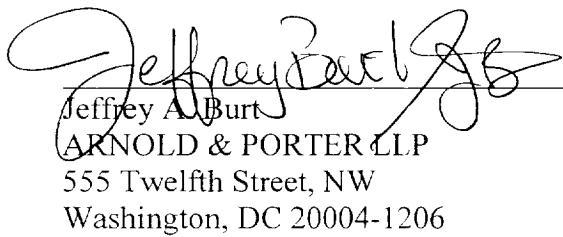 Jeffrey Burt
Jeffrey A. Burt
ARNOLD & PORTER LLP
555 Twelfth Street, NW
Washington, DC 20004-1206